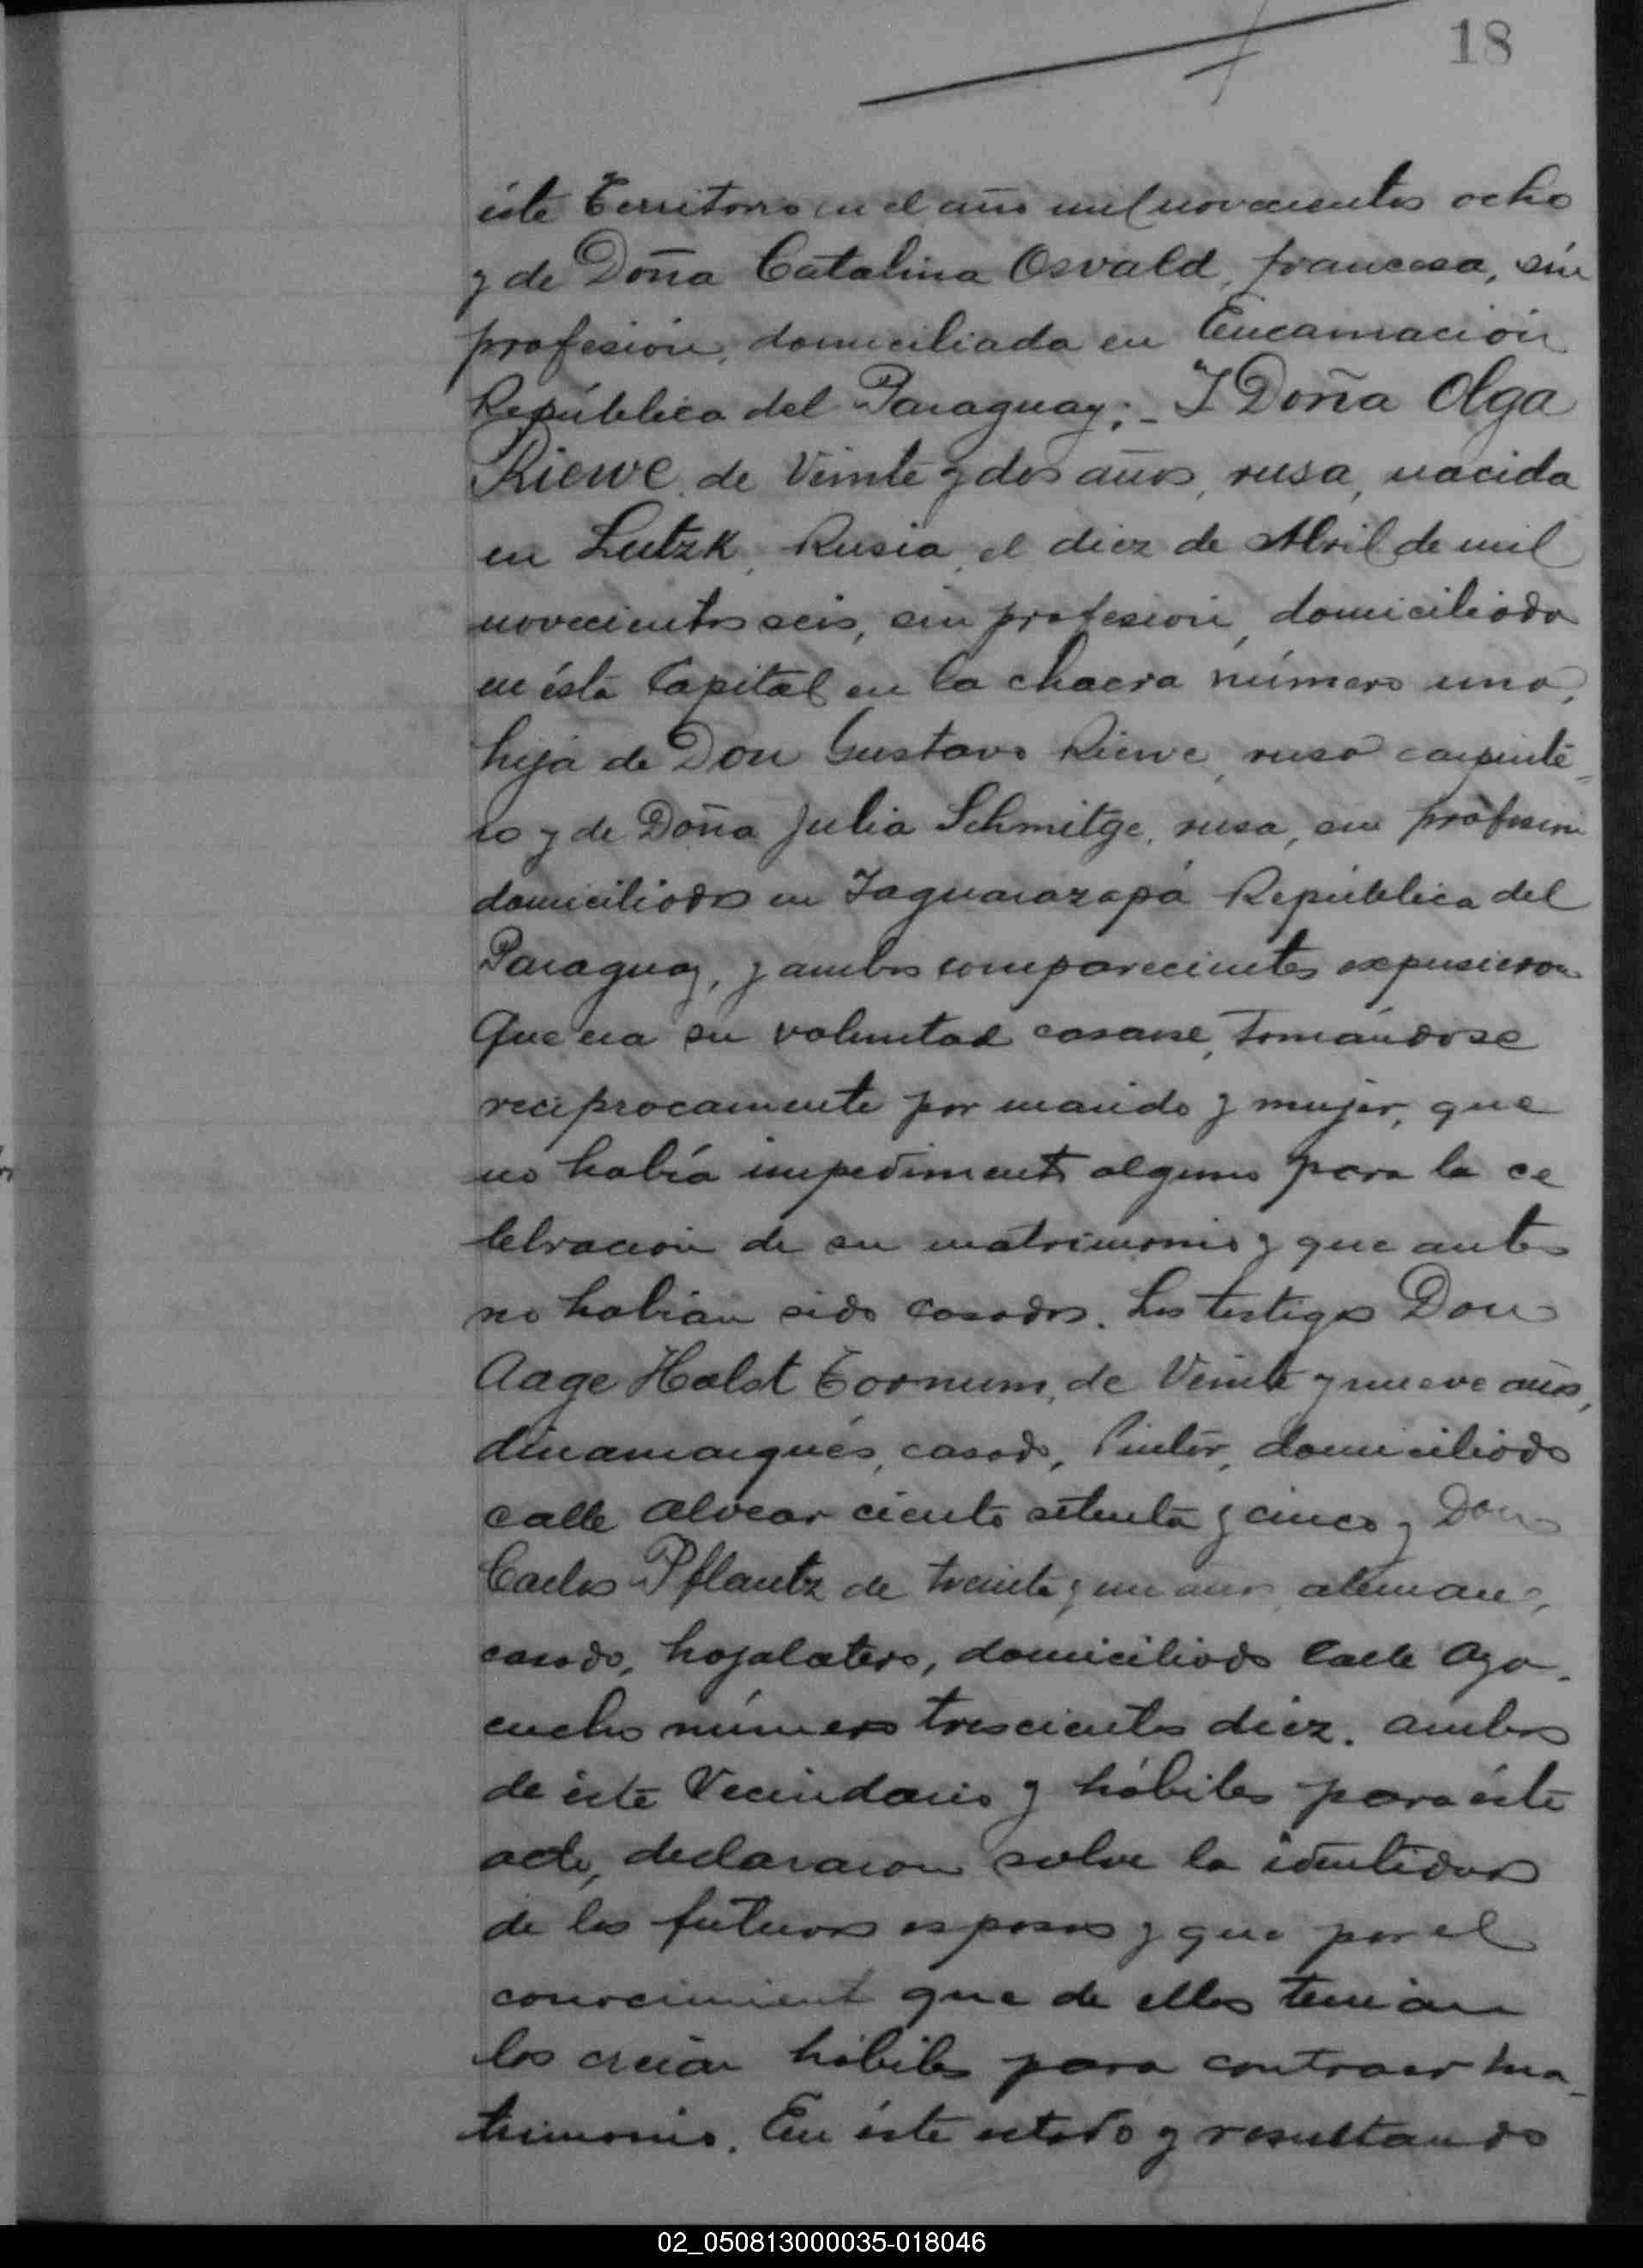 18
éste Territorio en el año mil novecientos ocho
y de Doña Catalina Osvald, francesa, sin
profesión, domiciliada en Encarnación
República del Paraguay; - Y Doña Olga
Riewe, de Veinte y dos años, rusa, nacida
en Lutzk, Rusia, el diez de Abril de mil
novecientos seis, sin profesión, domiciliada
en ésta Capital en la chacra número uno,
hija de Don Gustavo Riewe, ruso carpinte-
ro y de Doña Julia Schmitge, rusa, sin profesión
domiciliados en Yaguarazapá República del
Paraguay, y ambos comparecientes expusieron
Que era su voluntad casarse, tomándose
reciprocamente por marido y mujer, que
no había impedimento alguno para la ce
lebración de su matrimonio y que antes
no habían sido casados. Los testigos Don
Aage Holst Tornum, de Veinte y nueve años,
dinamarqués, casado, Pintor, domiciliado
calle Alvear ciento setenta y cinco y Don
Carlos Pflantz de treinta y un años, aleman,
casado, hojalatero, domiciliado Calle Aya-
cucho número trescientos diez. ambos
de éste Vecindario y hábiles para éste
acto, declararon sobre la identidad
de los futuros esposos y que por el
conocimiento que de ellos tenían
los creían hábiles para contraer ma-
trimonio. En éste estado y resultando
02_050813000035-018046